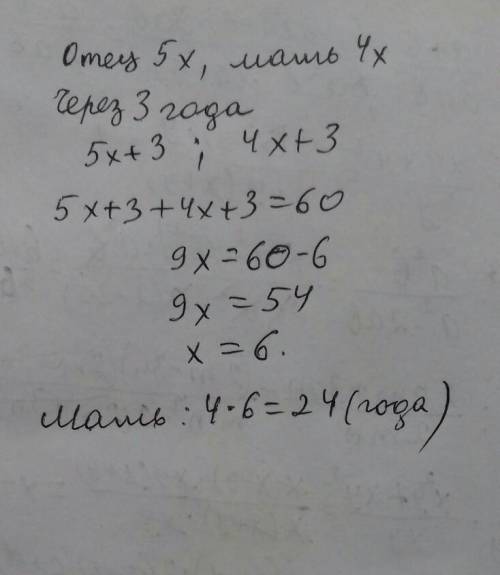 Отец 5x, мать 4x
Через 3 года
5x+3 ; 4x+3
5x+3+4x+3=60
9x=60-6
9x=54
x=6.
Мать: 4·6=24(года)